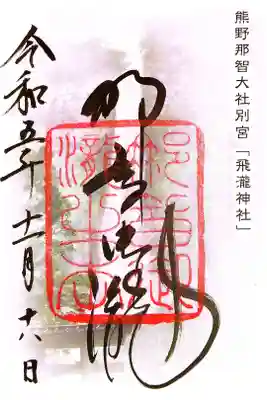 熊野那智大社別宮「飛瀧神社」
那智御瀧
令和五年
十一月十八日